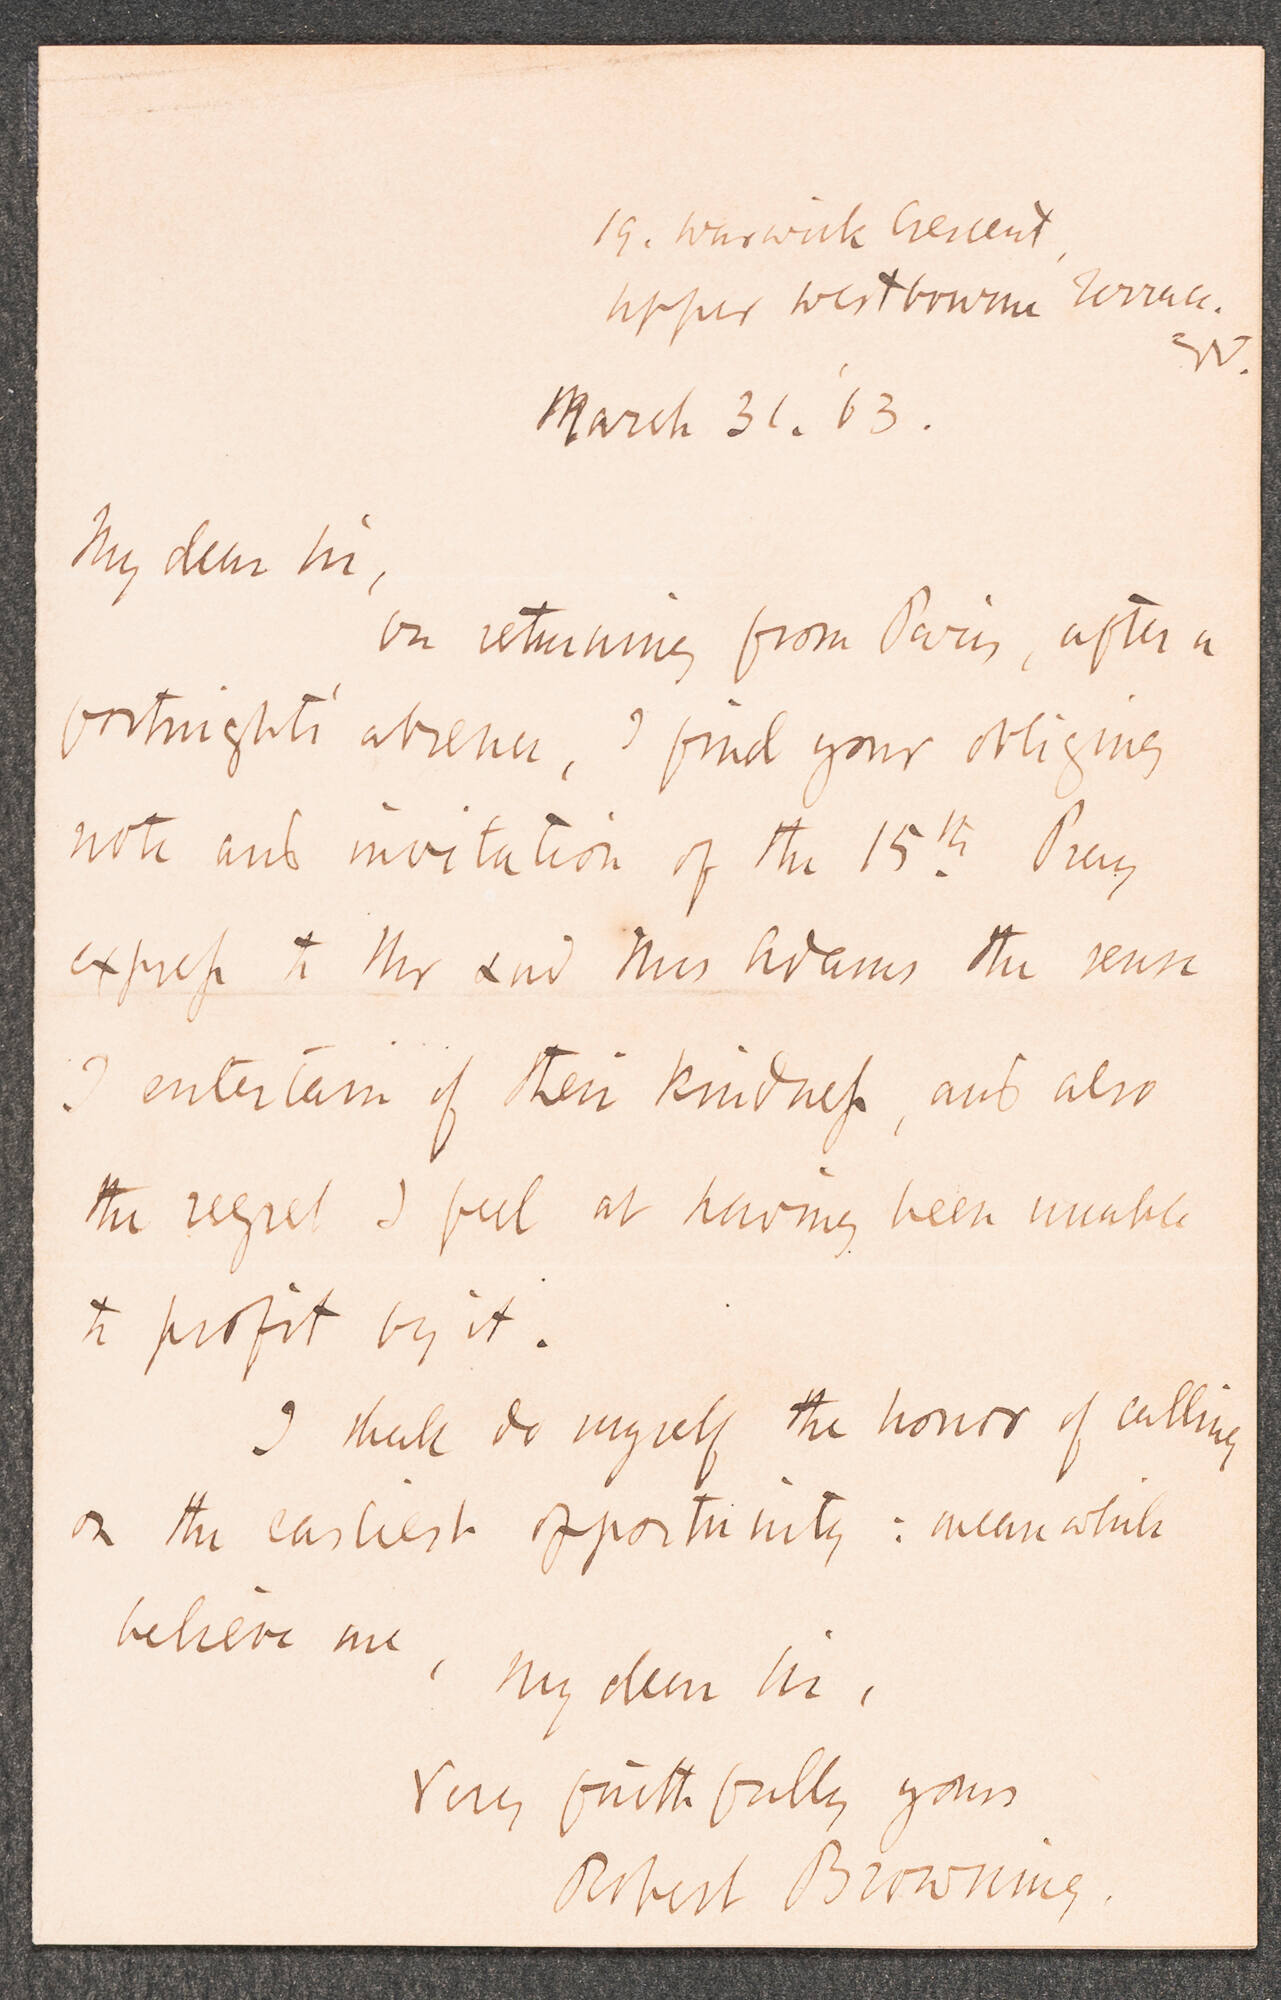 19. Warwick Crescent,
Upper Westbourne Terrace.
W.
March 31. '63.
My dear Sir,
On returning from Paris, after a
fortnight's absence, I find your obliging
note and invitation of the 15th. Pray
express to Mr and Mrs Adams the sense
I entertain of their kindness, and also
the regret I feel at having been unable
to profit by it.
I shall do myself the honor of calling
on the earliest opportunity: meanwhile
believe me, My dear Sir,
Very faithfully yours
Robert Browning.